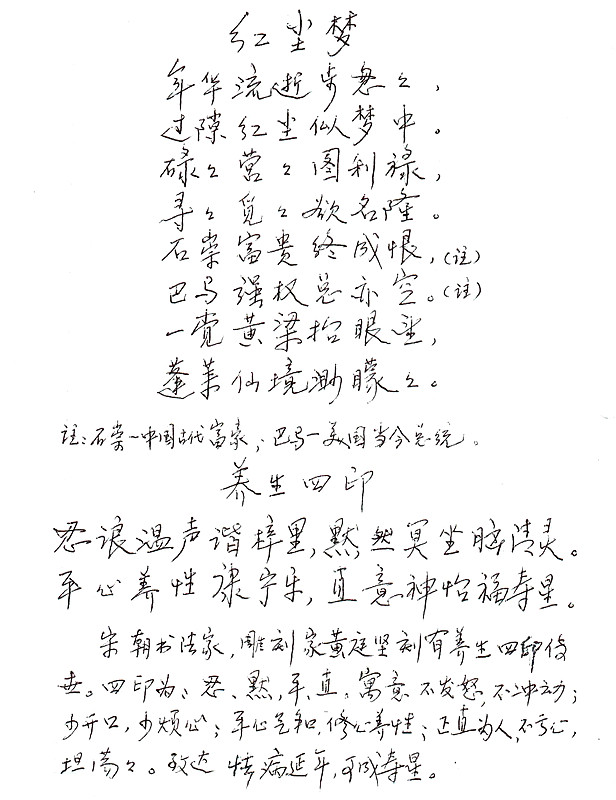 红尘梦
年华流逝步怱々，
过隙红尘似梦中。
碌々营々图利禄，
寻々觅々欲名隆。
石崇富贵终成恨，(注)
巴马强权总亦空。(注)
一觉黄梁抬眼望，
蓬莱仙境渺朦々。
注：石崇一中国古代富豪；巴马一美国当今总统。
养生四印
忍浪温声谐梓里，黙然冥坐脑清灵。
平心养性康宁乐，直意神怡福寿星。
宋朝书法家，雕刻家黄庭坚刻有养生四印传
世。四印为：忍、黙、平、直，寓意不发怒，不冲动；
少开口，少烦心；平心气和，修心养性；正直为人，不亏心，
坦荡々。致达怯病延年，可成寿星。